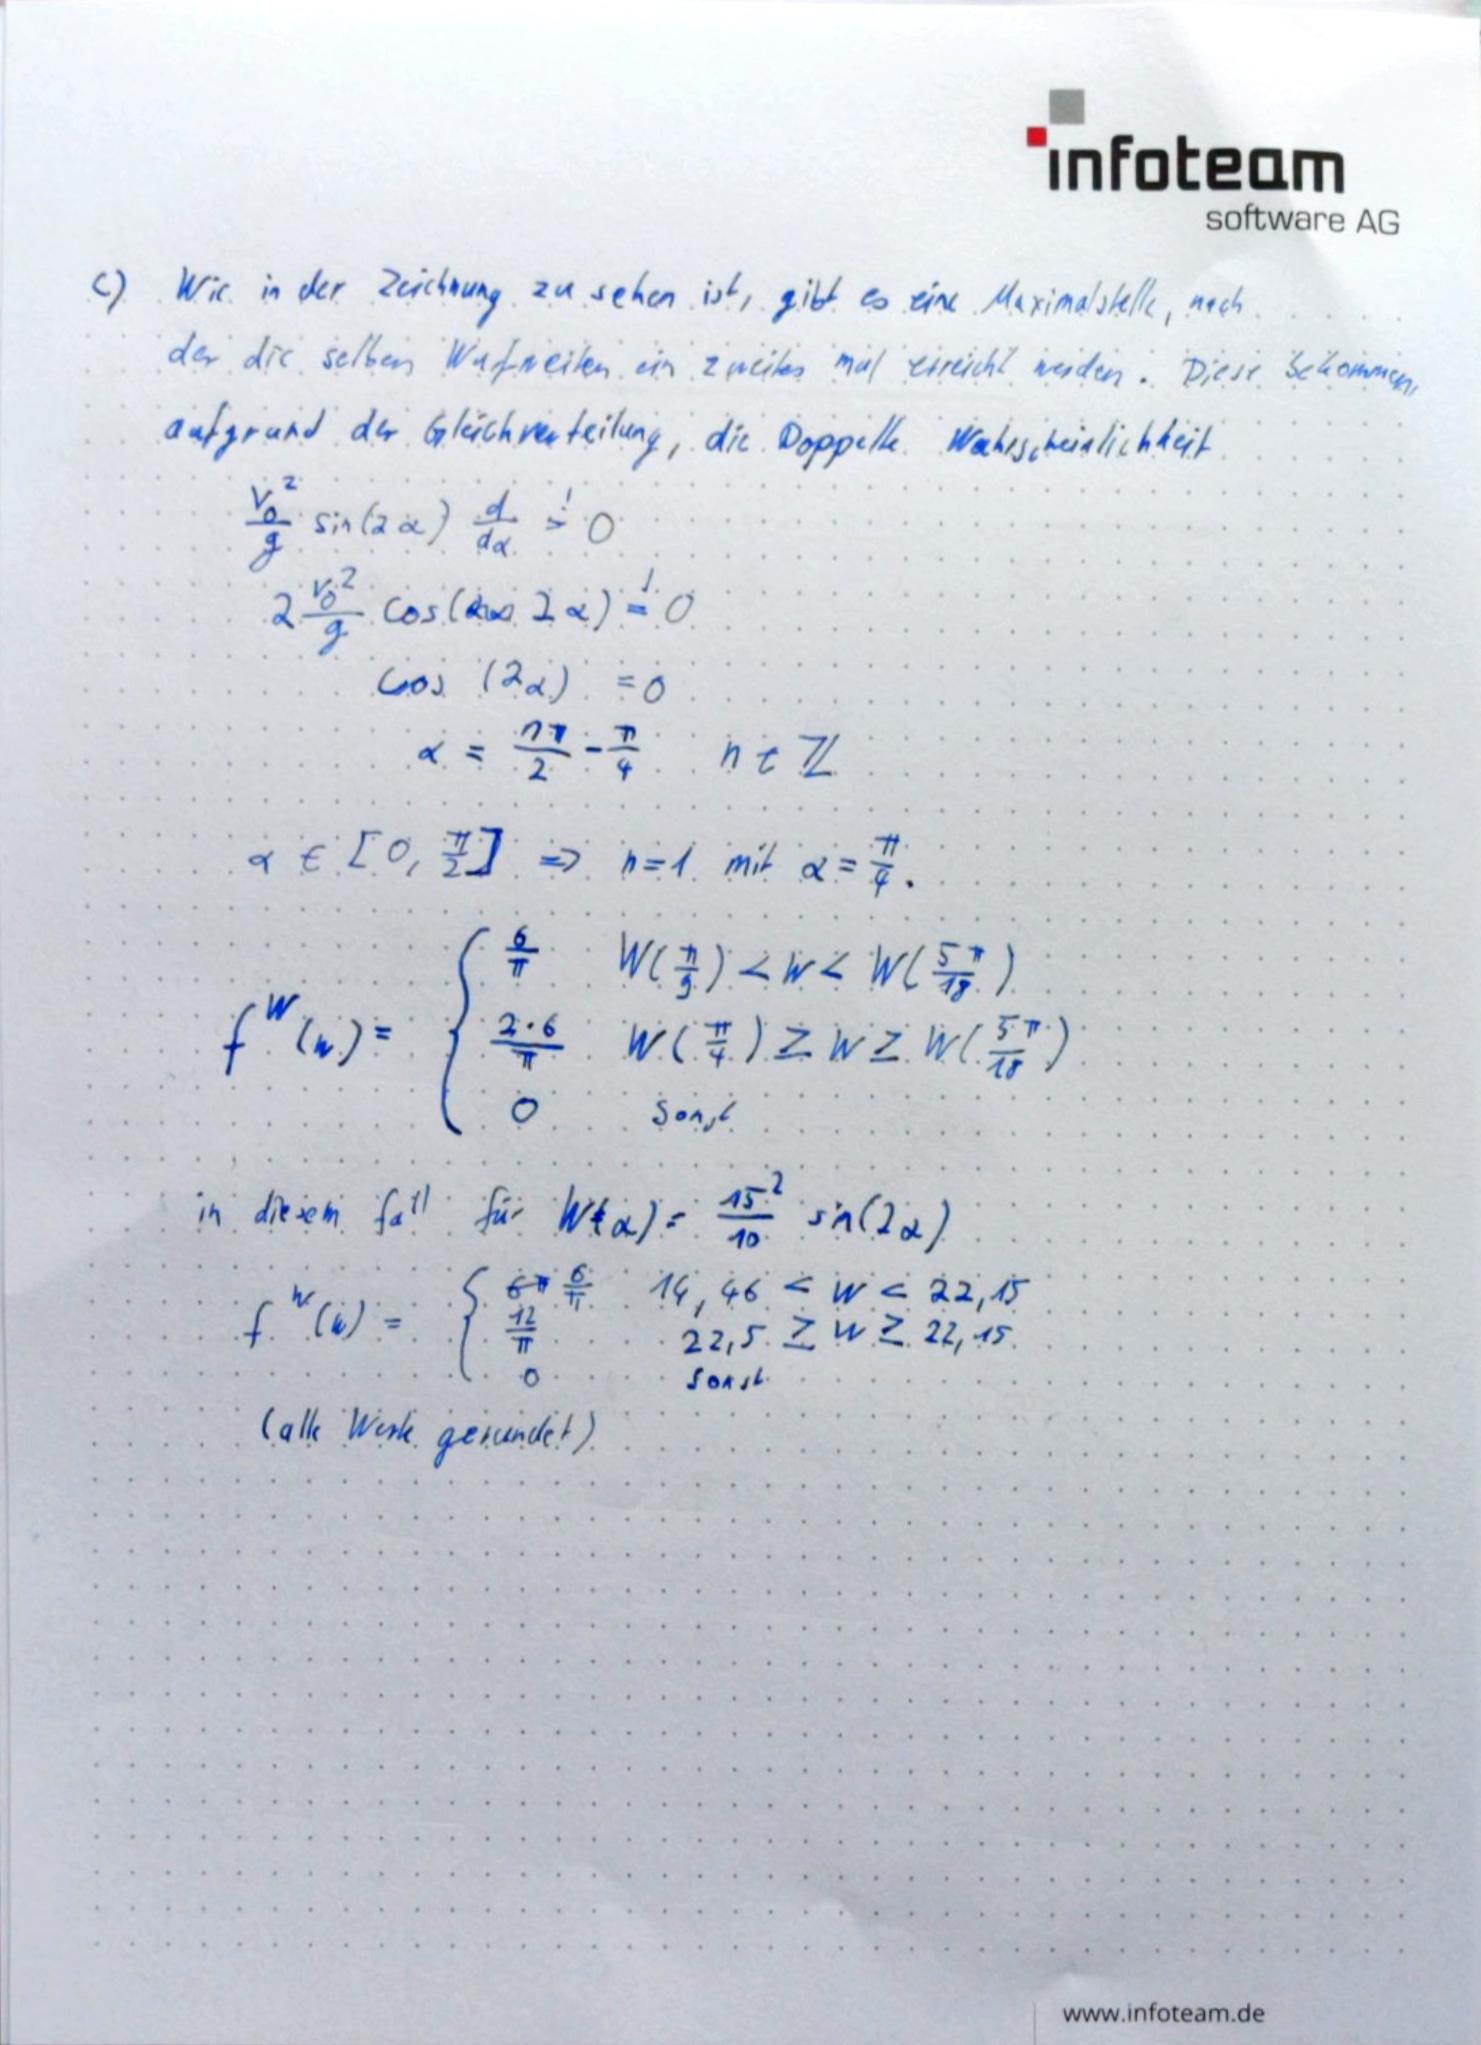 infoteam
software AG
c) Wie in der Zeichnung zu sehen ist, gibt es eine Maximalstelle, nach
der die selben Wufweiten ein zweites mal erreicht werden. Diese bekommen,
aufgrund der Gleichverteilung, die Doppelte Wahrscheinlichkeit
v₀²/g sin(2α) d/dα != 0
2 v₀²/g cos( 2α) != 0
cos (2α) = 0
α = nπ/2 - π/4 n ∈ ℤ
α ∈ [0, π/2] => n=1 mit α = π/4.
f^W(w) = { 6/π W(π/9) < w < W(5π/18)
2·6/π W(π/4) ≥ w ≥ W(5π/18)
0 sonst
in diesem fall für W(α) = 15²/10 sin(2α)
f^W(w) = { 6/π 14,46 < w < 22,15
12/π 22,5 ≥ w ≥ 22,15
0 sonst
(alle Werte gerundet)
www.infoteam.de